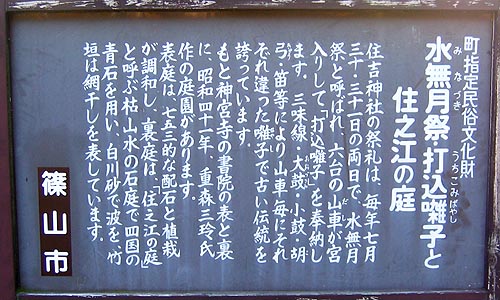 町指定民俗文化財
水無月祭・打込囃子と
みなづき
うちこみばやし
住之江の庭
住吉神社の祭礼は、毎年七月
三十・三十一日の両日で、水無月
祭と呼ばれ、六台の山車が宮
入りして、「打込囃子」を奉納し
ます。三味線・大鼓・小鼓・胡
弓・笛等により山車毎にそれ
ぞれ違った囃子で古い伝統を
誇っています。
もと神宮寺の書院の表と裏
に、昭和四十一年、重森三玲氏
作の庭園があります。
表庭は、七五三的な配石と植栽
が調和し、裏庭は、「住之江の庭」
と呼ぶ枯山水の石庭で四国の
青石を用い、白川砂で波を、竹
垣は網干しを表しています。
篠山市